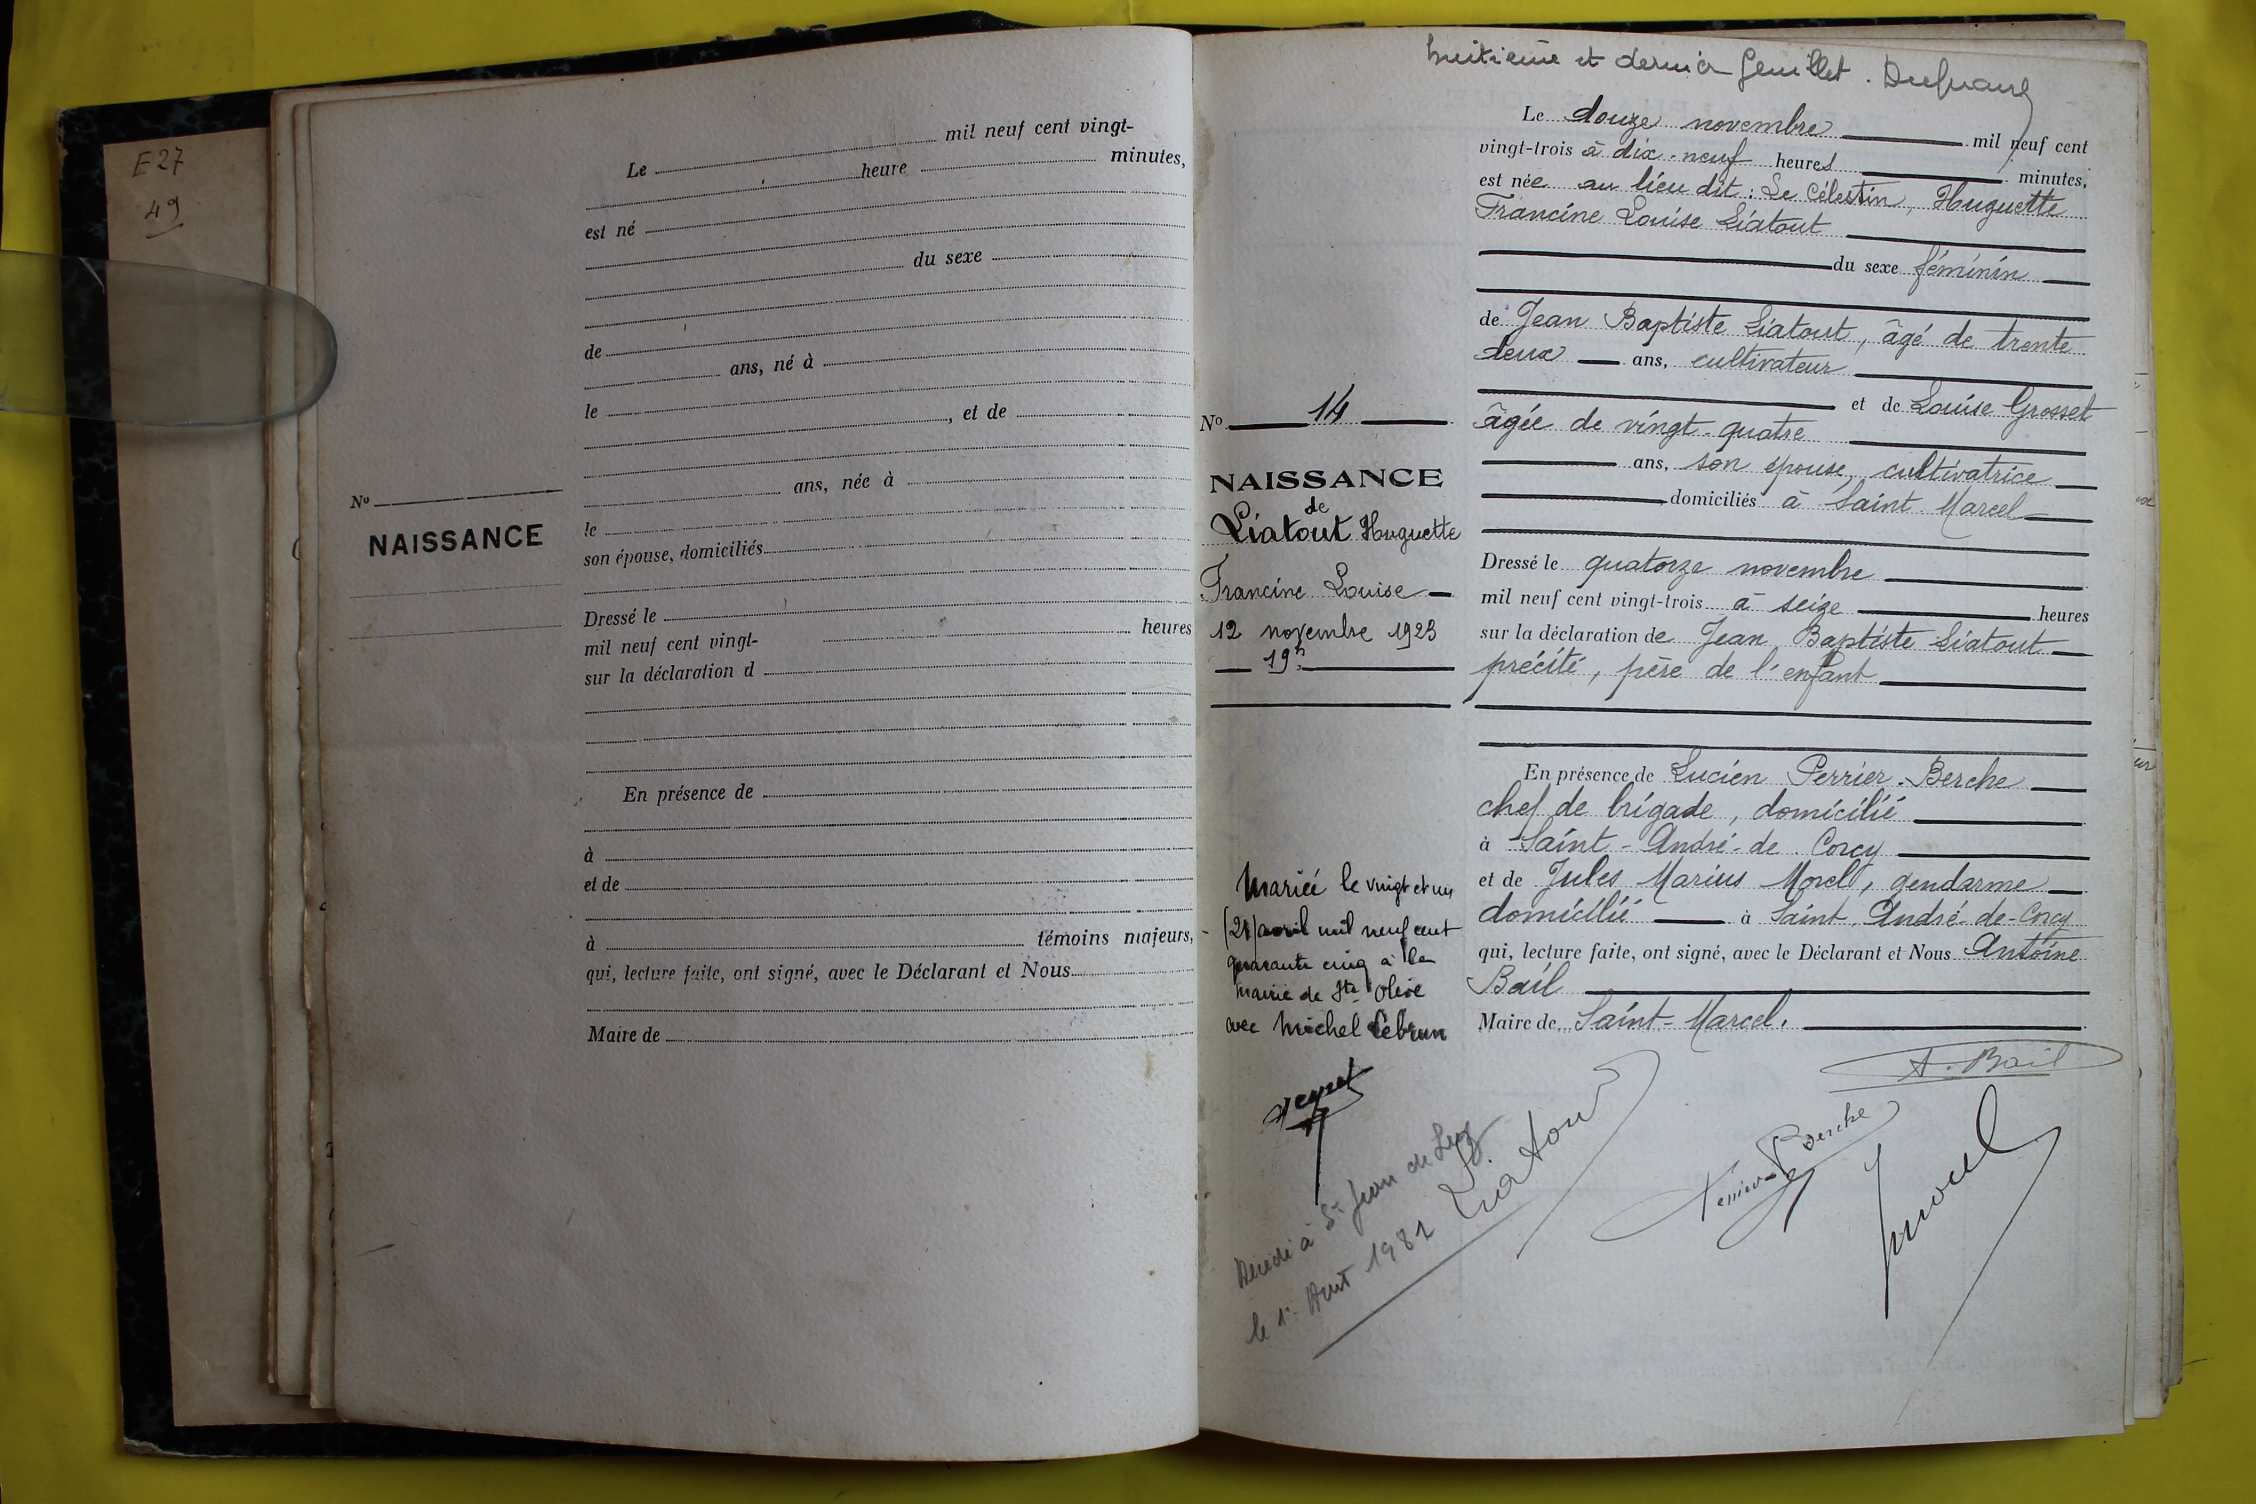 E 27
49
Le mil neuf cent vingt-
heure minutes,
est né
du sexe
de
ans, né à
le , et de
ans, née à
le
son épouse, domiciliés
Dressé le
mil neuf cent vingt- heures
sur la déclaration d
En présence de
à
et de
à témoins majeurs,
qui, lecture faite, ont signé, avec le Déclarant et Nous
Maire de
No
NAISSANCE
huitième et dernier feuillet.
Le douze novembre mil neuf cent
vingt-trois à dix-neuf heures minutes,
est née au lieu dit : Le Célestin, Huguette
Francine Louise Liatout
du sexe féminin
de Jean Baptiste Liatout, âgé de trente
deux ans, cultivateur
et de Louise Grosset
âgée de vingt-quatre
ans, son épouse, cultivatrice
domiciliés à Saint Marcel
Dressé le quatorze novembre
mil neuf cent vingt-trois à seize heures
sur la déclaration de Jean Baptiste Liatout
précité, père de l'enfant
En présence de Lucien Perrier-Berche
chef de brigade, domicilié
à Saint-André-de-Corcy
et de Jules Marius Morel, gendarme
domicilié à Saint-André-de-Corcy
qui, lecture faite, ont signé, avec le Déclarant et Nous Antoine
Bail
Maire de Saint-Marcel.
A. Bail
Liatout
Perrier-Berche
Morel
No 14
NAISSANCE
de
Liatout Huguette
Francine Louise
12 novembre 1923
19h
Mariée le vingt et un
(21) avril mil neuf cent
quarante cinq à la
mairie de Ste Olive
avec Michel Lebrun
Décédé à St Jean de Luz
le 1er Aout 1982